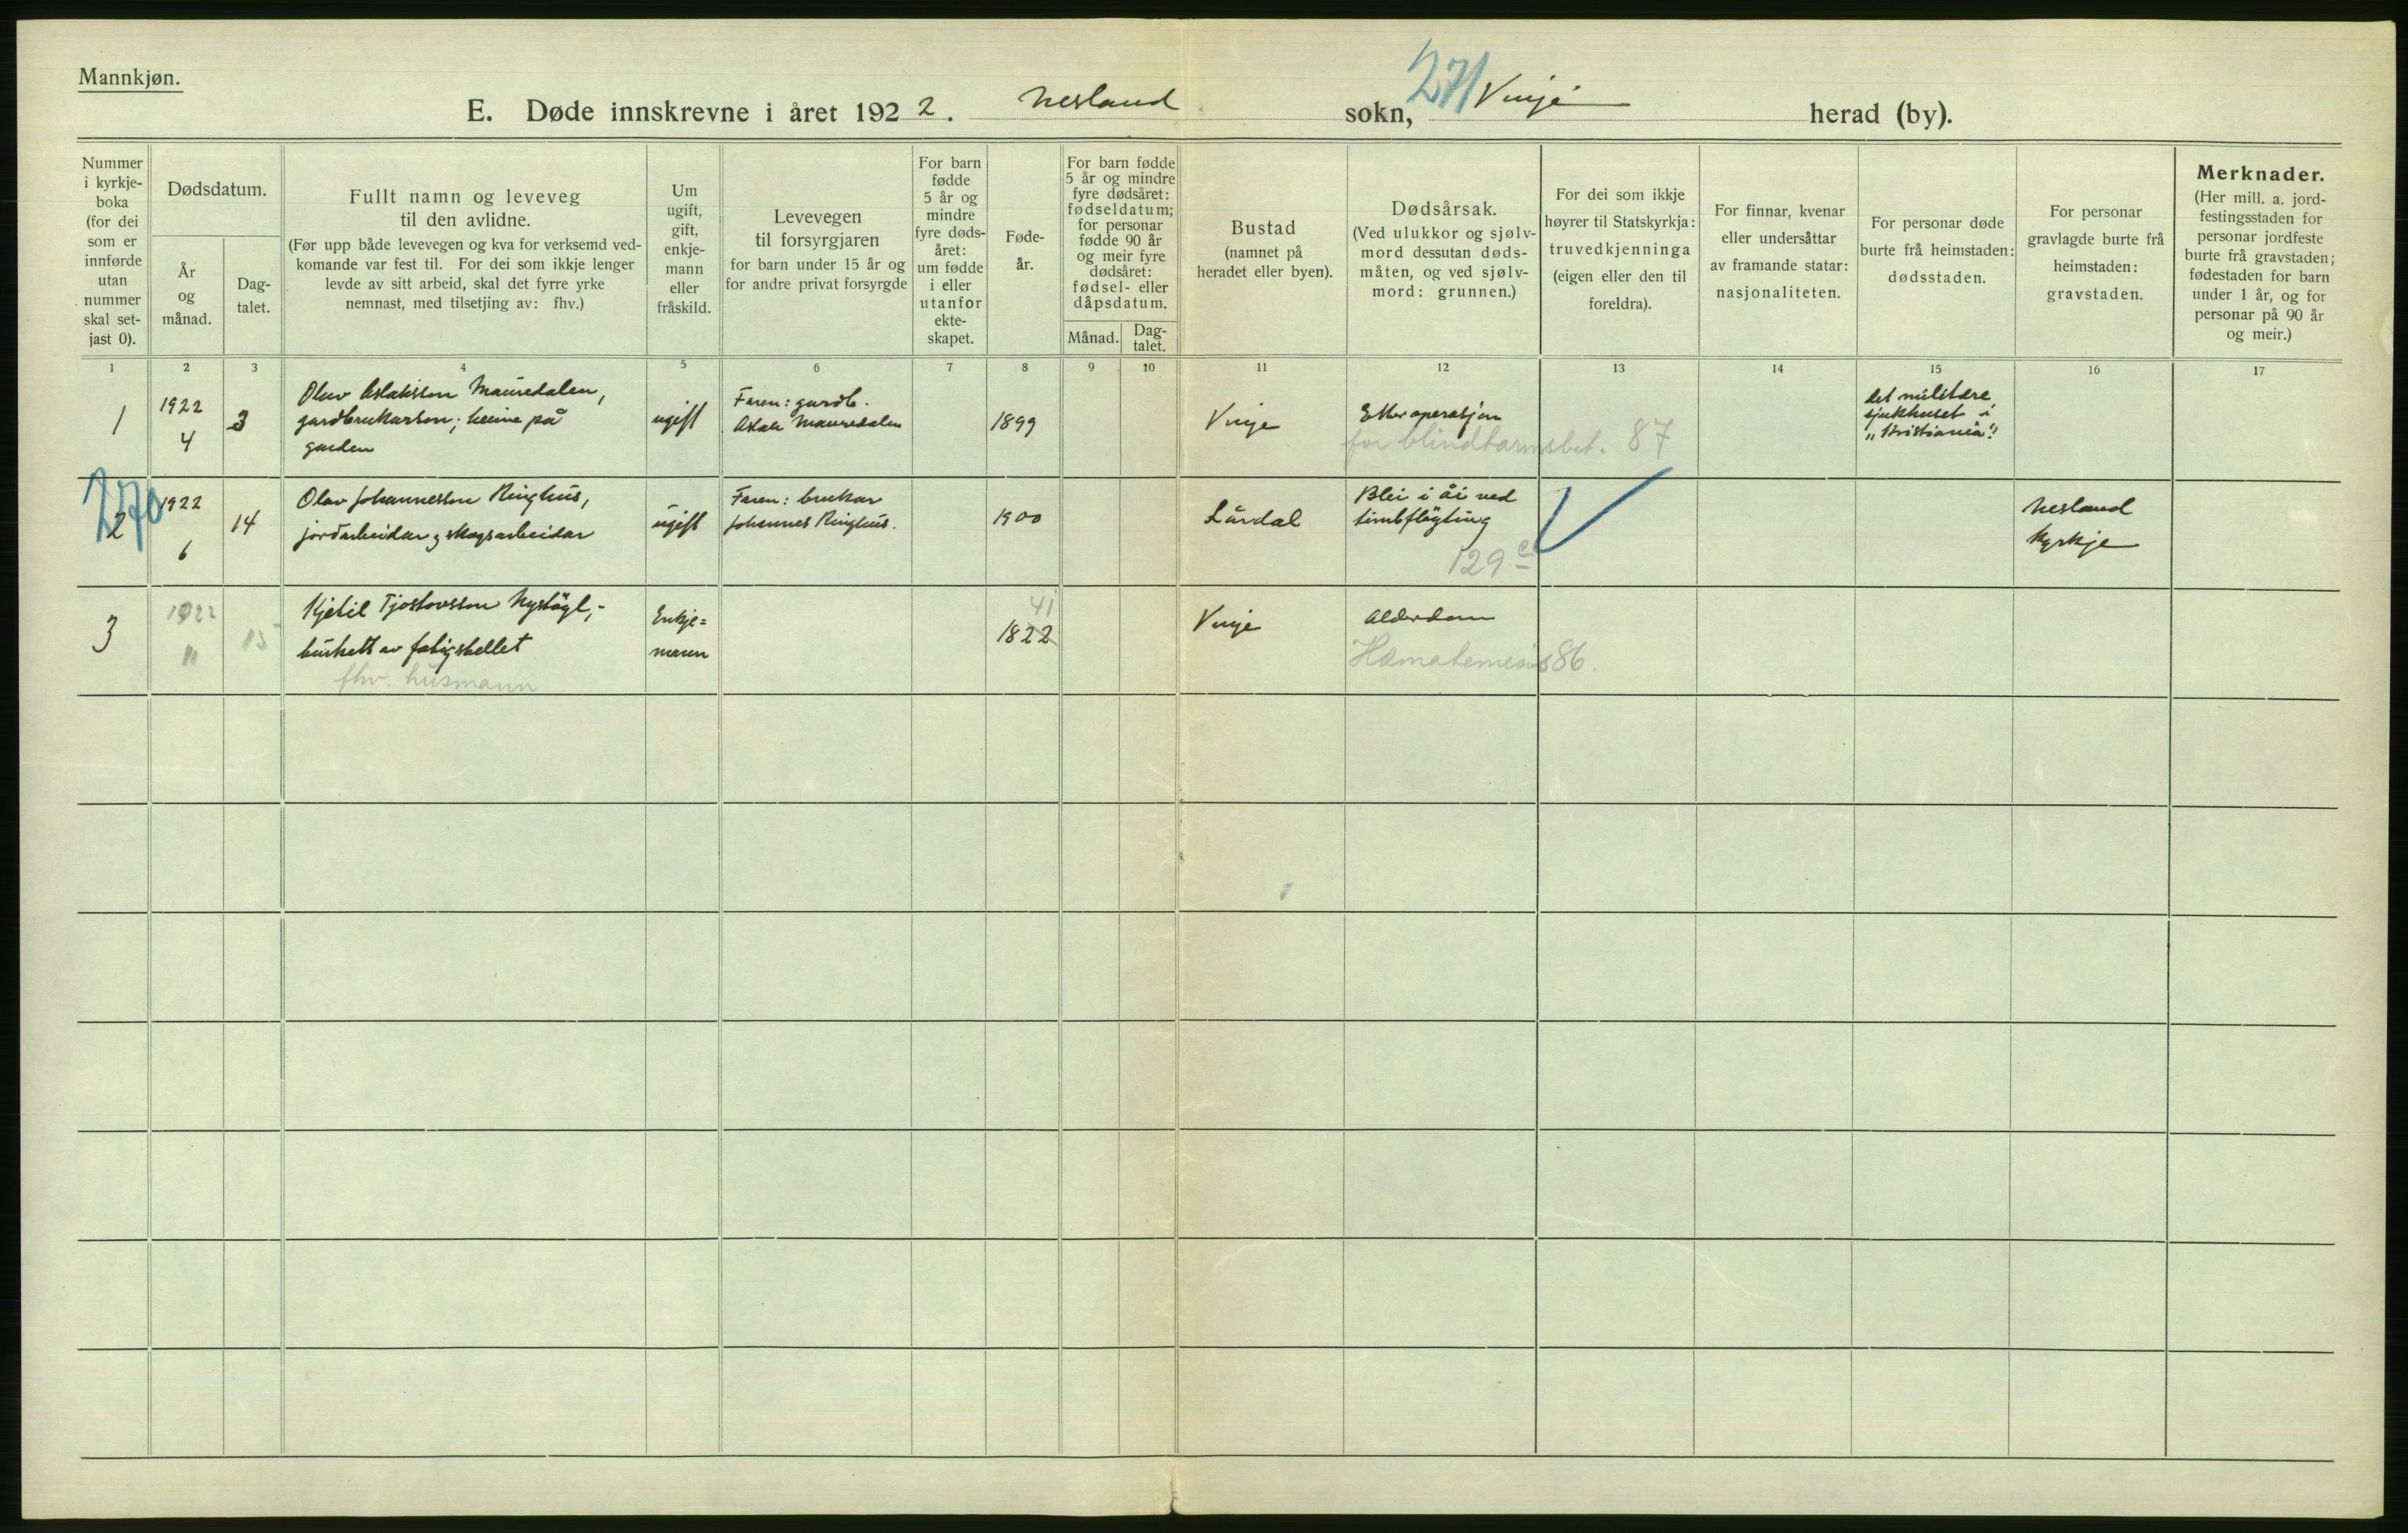 Mannkjøn.
E. Døde innskrevne i året 1922. Nesland sokn, 271 Vinje herad (by).
Nummer
i kyrkje-
boka
(for dei
som er
innførde
utan
nummer
skal set-
jast 0).
Dødsdatum.
År
og
månad.
Dag-
talet.
Fullt namn og leveveg
til den avlidne.
(Før upp både levevegen og kva for verksemd ved-
komande var fest til. For dei som ikkje lenger
levde av sitt arbeid, skal det fyrre yrke
nemnast, med tilsetjing av: fhv.)
Um
ugift,
gift,
enkje-
mann
eller
fråskild.
Levevegen
til forsyrgjaren
for barn under 15 år og
for andre privat forsyrgde
For barn
fødde
5 år og
mindre
fyre døds-
året:
um fødde
i eller
utanfor
ekte-
skapet.
Føde-
år.
For barn fødde
5 år og mindre
fyre dødsåret:
fødseldatum;
for personar
fødde 90 år
og meir fyre
dødsåret:
fødsel- eller
dåpsdatum.
Månad.
Dag-
talet.
Bustad
(namnet på
heradet eller byen).
Dødsårsak.
(Ved ulukkor og sjølv-
mord dessutan døds-
måten, og ved sjølv-
mord: grunnen.)
For dei som ikkje
høyrer til Statskyrkja:
truvedkjenninga
(eigen eller den til
foreldra).
For finnar, kvenar
eller undersåttar
av framande statar:
nasjonaliteten.
For personar døde
burte frå heimstaden:
dødsstaden.
For personar
gravlagde burte frå
heimstaden:
gravstaden.
Merknader.
(Her mill. a. jord-
festingsstaden for
personar jordfeste
burte frå gravstaden;
fødestaden for barn
under 1 år, og for
personar på 90 år
og meir.)
1 2 3 4 5 6 7 8 9 10 11 12 13 14 15 16 17
1
1922
4
3
Olav Aslakson Mauredalen,
gardbrukarson; heime på
garden
ugift
Faren: gardb.
Aslak Mauredalen
1899
Vinje
Etter operasjon
for blindtarmsbet. 87
det militære
sjukhuset i
"Kristiania".
270
2
1922
6
14
Olav Johannesson Ringhus,
jordarbeidar og skogsarbeidar
ugift
Faren: brukar
Johannes Ringhus.
1900
Lårdal
Blei i åi ved
timbfløyting
129 c
Nesland
kyrkje
3
1922
11
15
Kjetil Tjostovson
av fatigstellet
fhv. husmann
Enkje=
mann
41
1822
Vinje
Alderdom
Hæmatemesis 86.